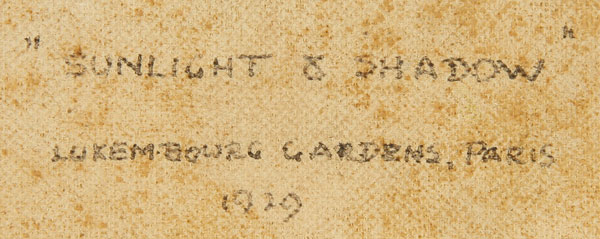 "SUNLIGHT & SHADOW"
LUXEMBOURG GARDENS, PARIS
1929